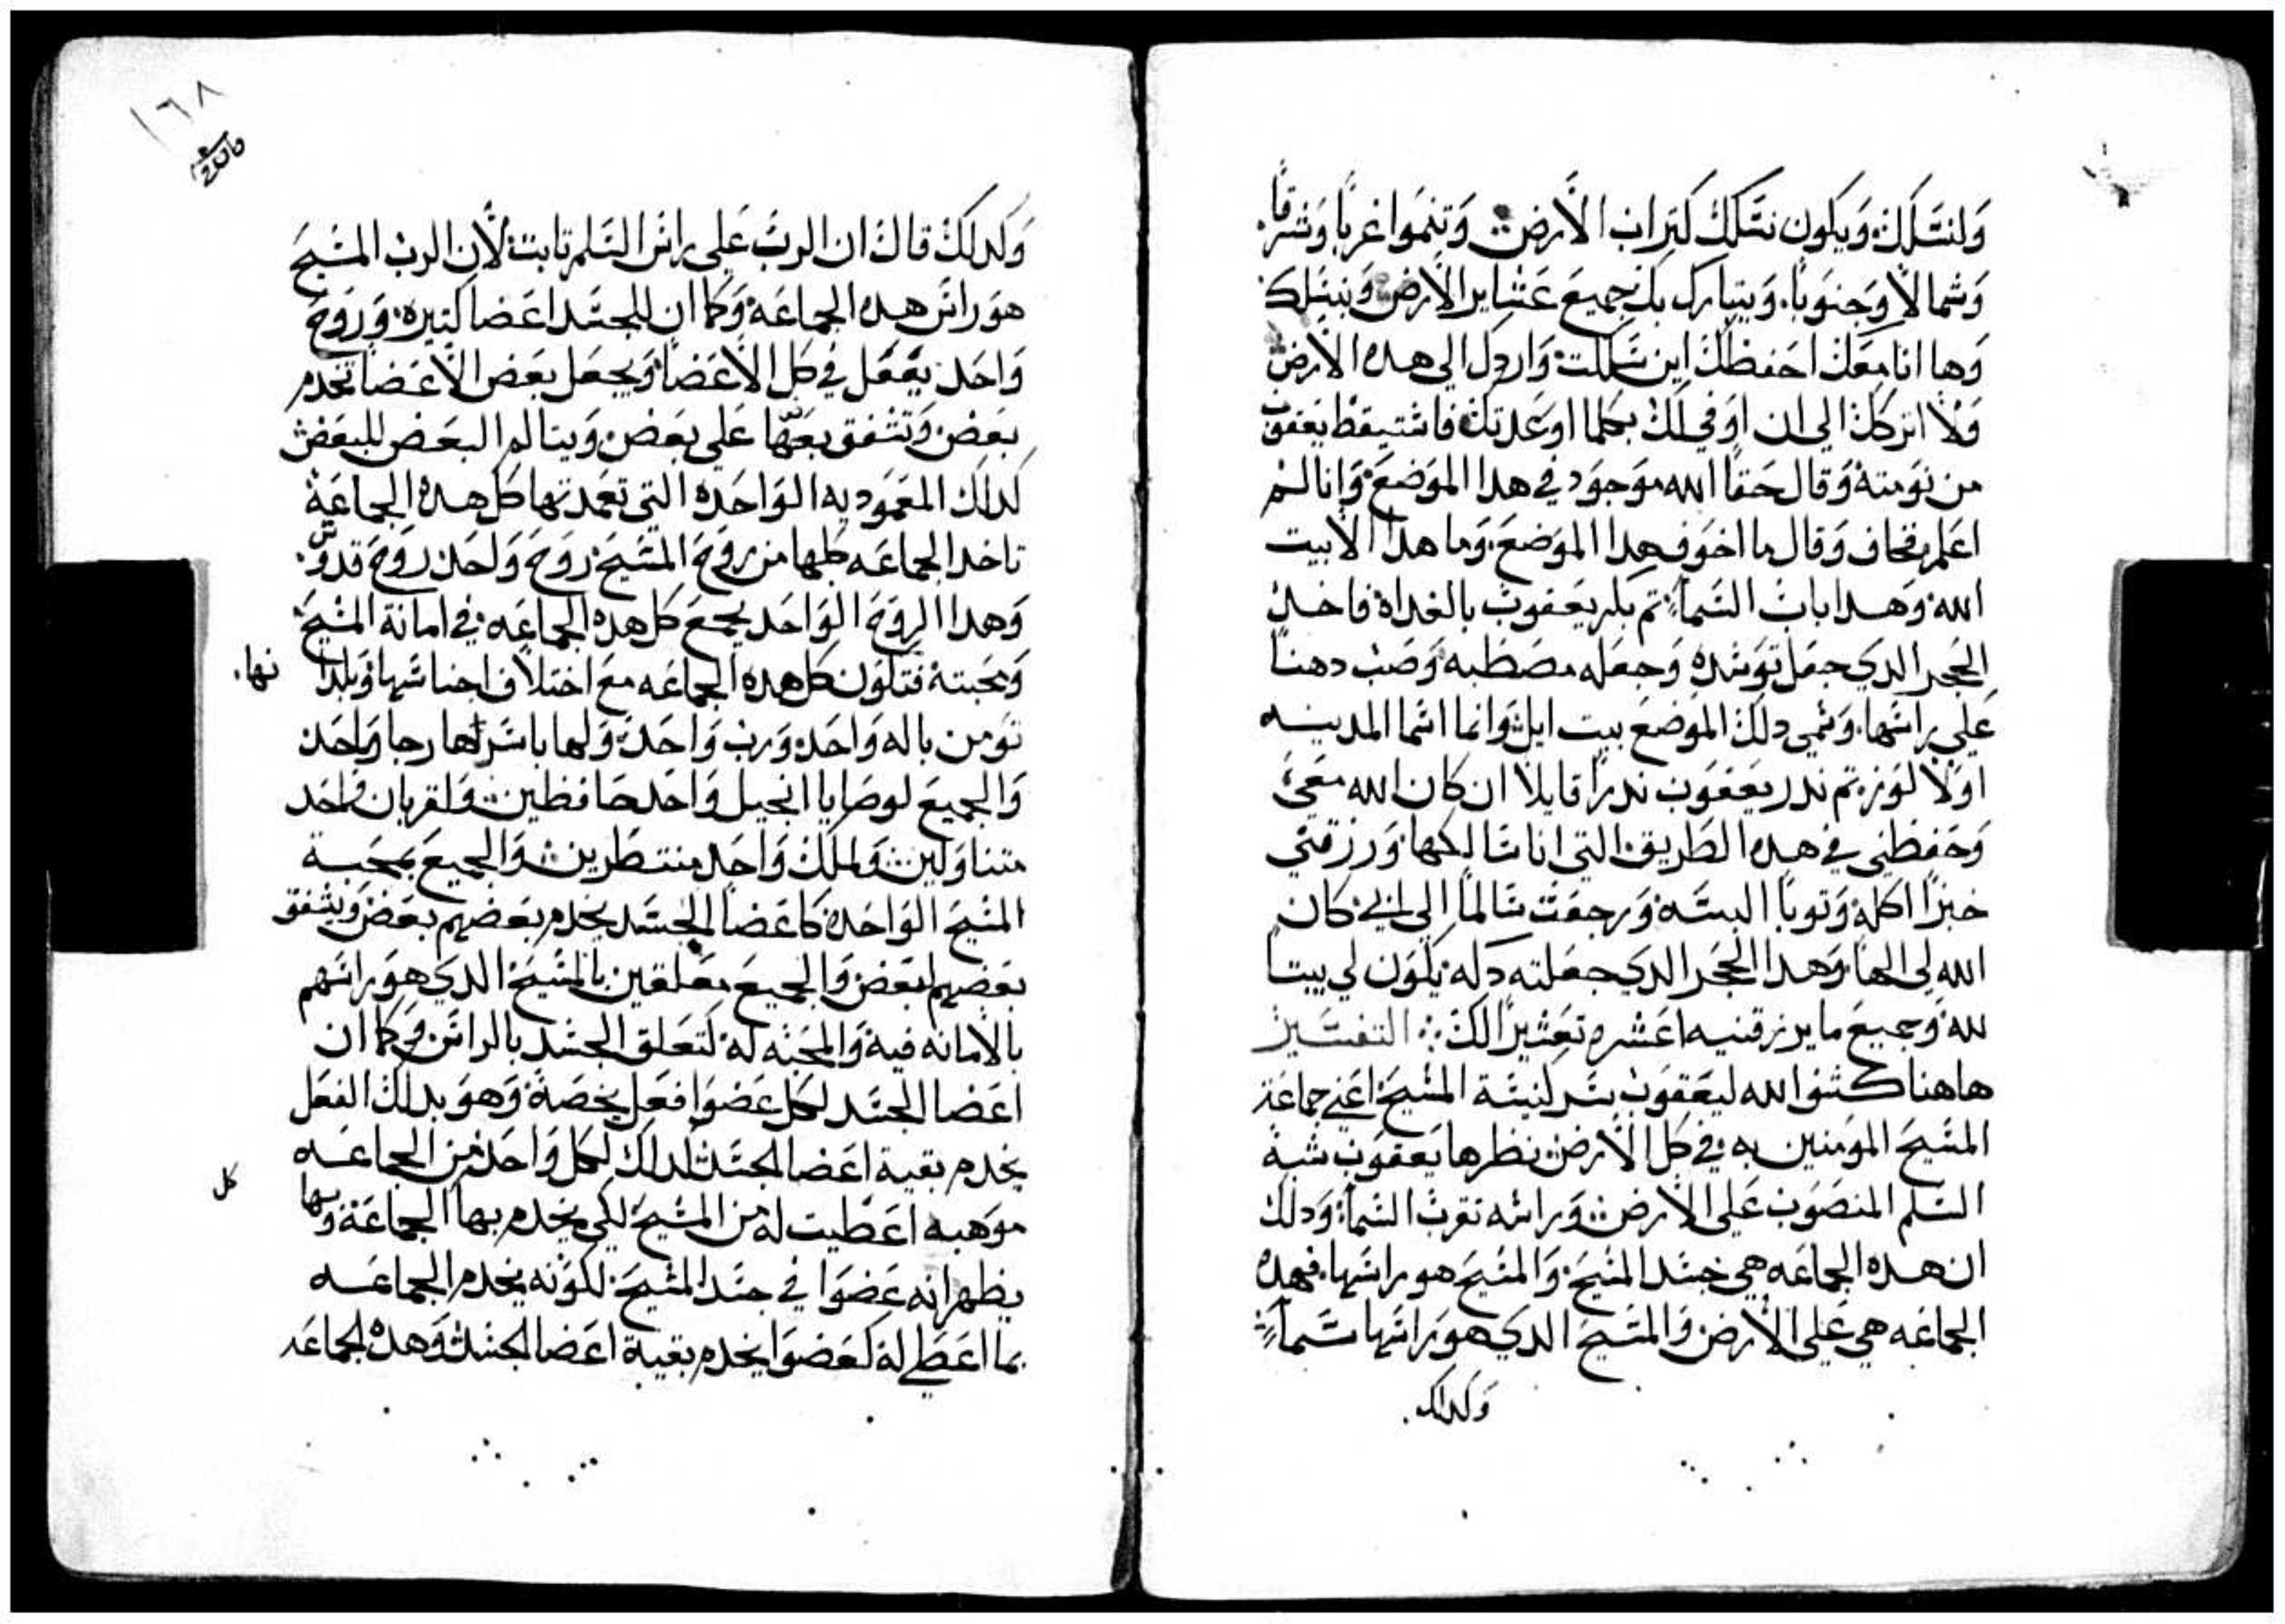 ولنسلك ويكون نسلك كتراب الارض وتنموا غربا وشرقا
وشمالا وجنوبا. ويتبارك بك جميع عشاير الارض وبنسلك
وها انا معك احفظك اين سلكت واردك الي هده الارض
ولا اتركك الي ان اوفي لك بكلما اوعدتك فاستيقظ يعقوب
من نومته وقال حقا الله موجود في هدا الموضع وانا لم
اعلم فخاف وقال ما اخوف هدا الموضع وما هدا الا بيت
الله وهدا باب السما تم بكر يعقوب بالغداه فاخد
الحجر الدي جعل توسده وجعله مصطبه وصب دهنا
علي راسها. وسمي دلك الموضع بيت ايل وانما اسما المدينه
اولا لوز تم ندر يعقوب ندرا قايلا ان كان الله معي
وحفظني في هده الطريق التي انا سالكها ورزقني
خبزا اكله وتوبا البسه ورجعت سالما الي ابي كان
الله لي الها وهدا الحجر الدي جعلته دكه يكون لي بيتا
لله وجميع ما يرزقنيه اعشره تعشيرا لك التفسير
هاهنا كشف الله ليعقوب سر كنيسة المسيح اعني جماعة
المسيح المومنين به في كل الارض نظرها يعقوب شبه
السلم المنصوب علي الارض وراسه تقرب السما ودلك
ان هده الجماعه هي جسد المسيح والمسيح هو راسها. فهده
الجماعه هي علي الارض والمسيح الدي هو راسها سما
وكدلك.
١٦٨
وكدلك قال ان الرب علي راس السلم تابت لان الرب المسيح
هو راس هده الجماعه وكما ان للجسد اعضا كتيره وروح
واحد يفعل في كل الاعضا ويجعل بعض الاعضا تخدم
بعض وتشفق بعضها علي بعض ويتالم البعض للبعض
كداك المعموديه الواحده التي تعمدتها كل هده الجماعة
تاخد الجماعه كلها من روح المسيح روح واحد روح قدوس
وهدا الروح الواحد يجمع كل هده الجماعه في امانة المسيح
ومحبته فتكون كل هده الجماعه مع اختلاف اجناسها وبلدانها.
تومن باله واحد ورب واحد ولها باسرها رجا واحد
والجميع لوصايا انجيل واحد حافظين ولقربان واحد
متناولين ولملك واحد منتظرين والجميع بمحبة
المسيح الواحده كاعضا الجسد يخدم بعضهم بعض ويشفق
بعضهم لبعض والجميع معلقين بالمسيح الدي هو راسهم
بالامانه فيه والمحبه له كتعلق الجسد بالراس وكما ان
اعضا الجسد لكل عضوا فعل يخصه وهو بدلك الفعل
يخدم بقية اعضا الجسد كداك لكل واحد من الجماعه
كل
موهبه اعطيت له من المسيح لكي يخدم بها الجماعة وبها
يظهر انه عضوا في جسد المسيح لكونه يخدم الجماعه
بما اعطي له كعضوا يخدم بقية اعضا الجسد وهده الجماعه